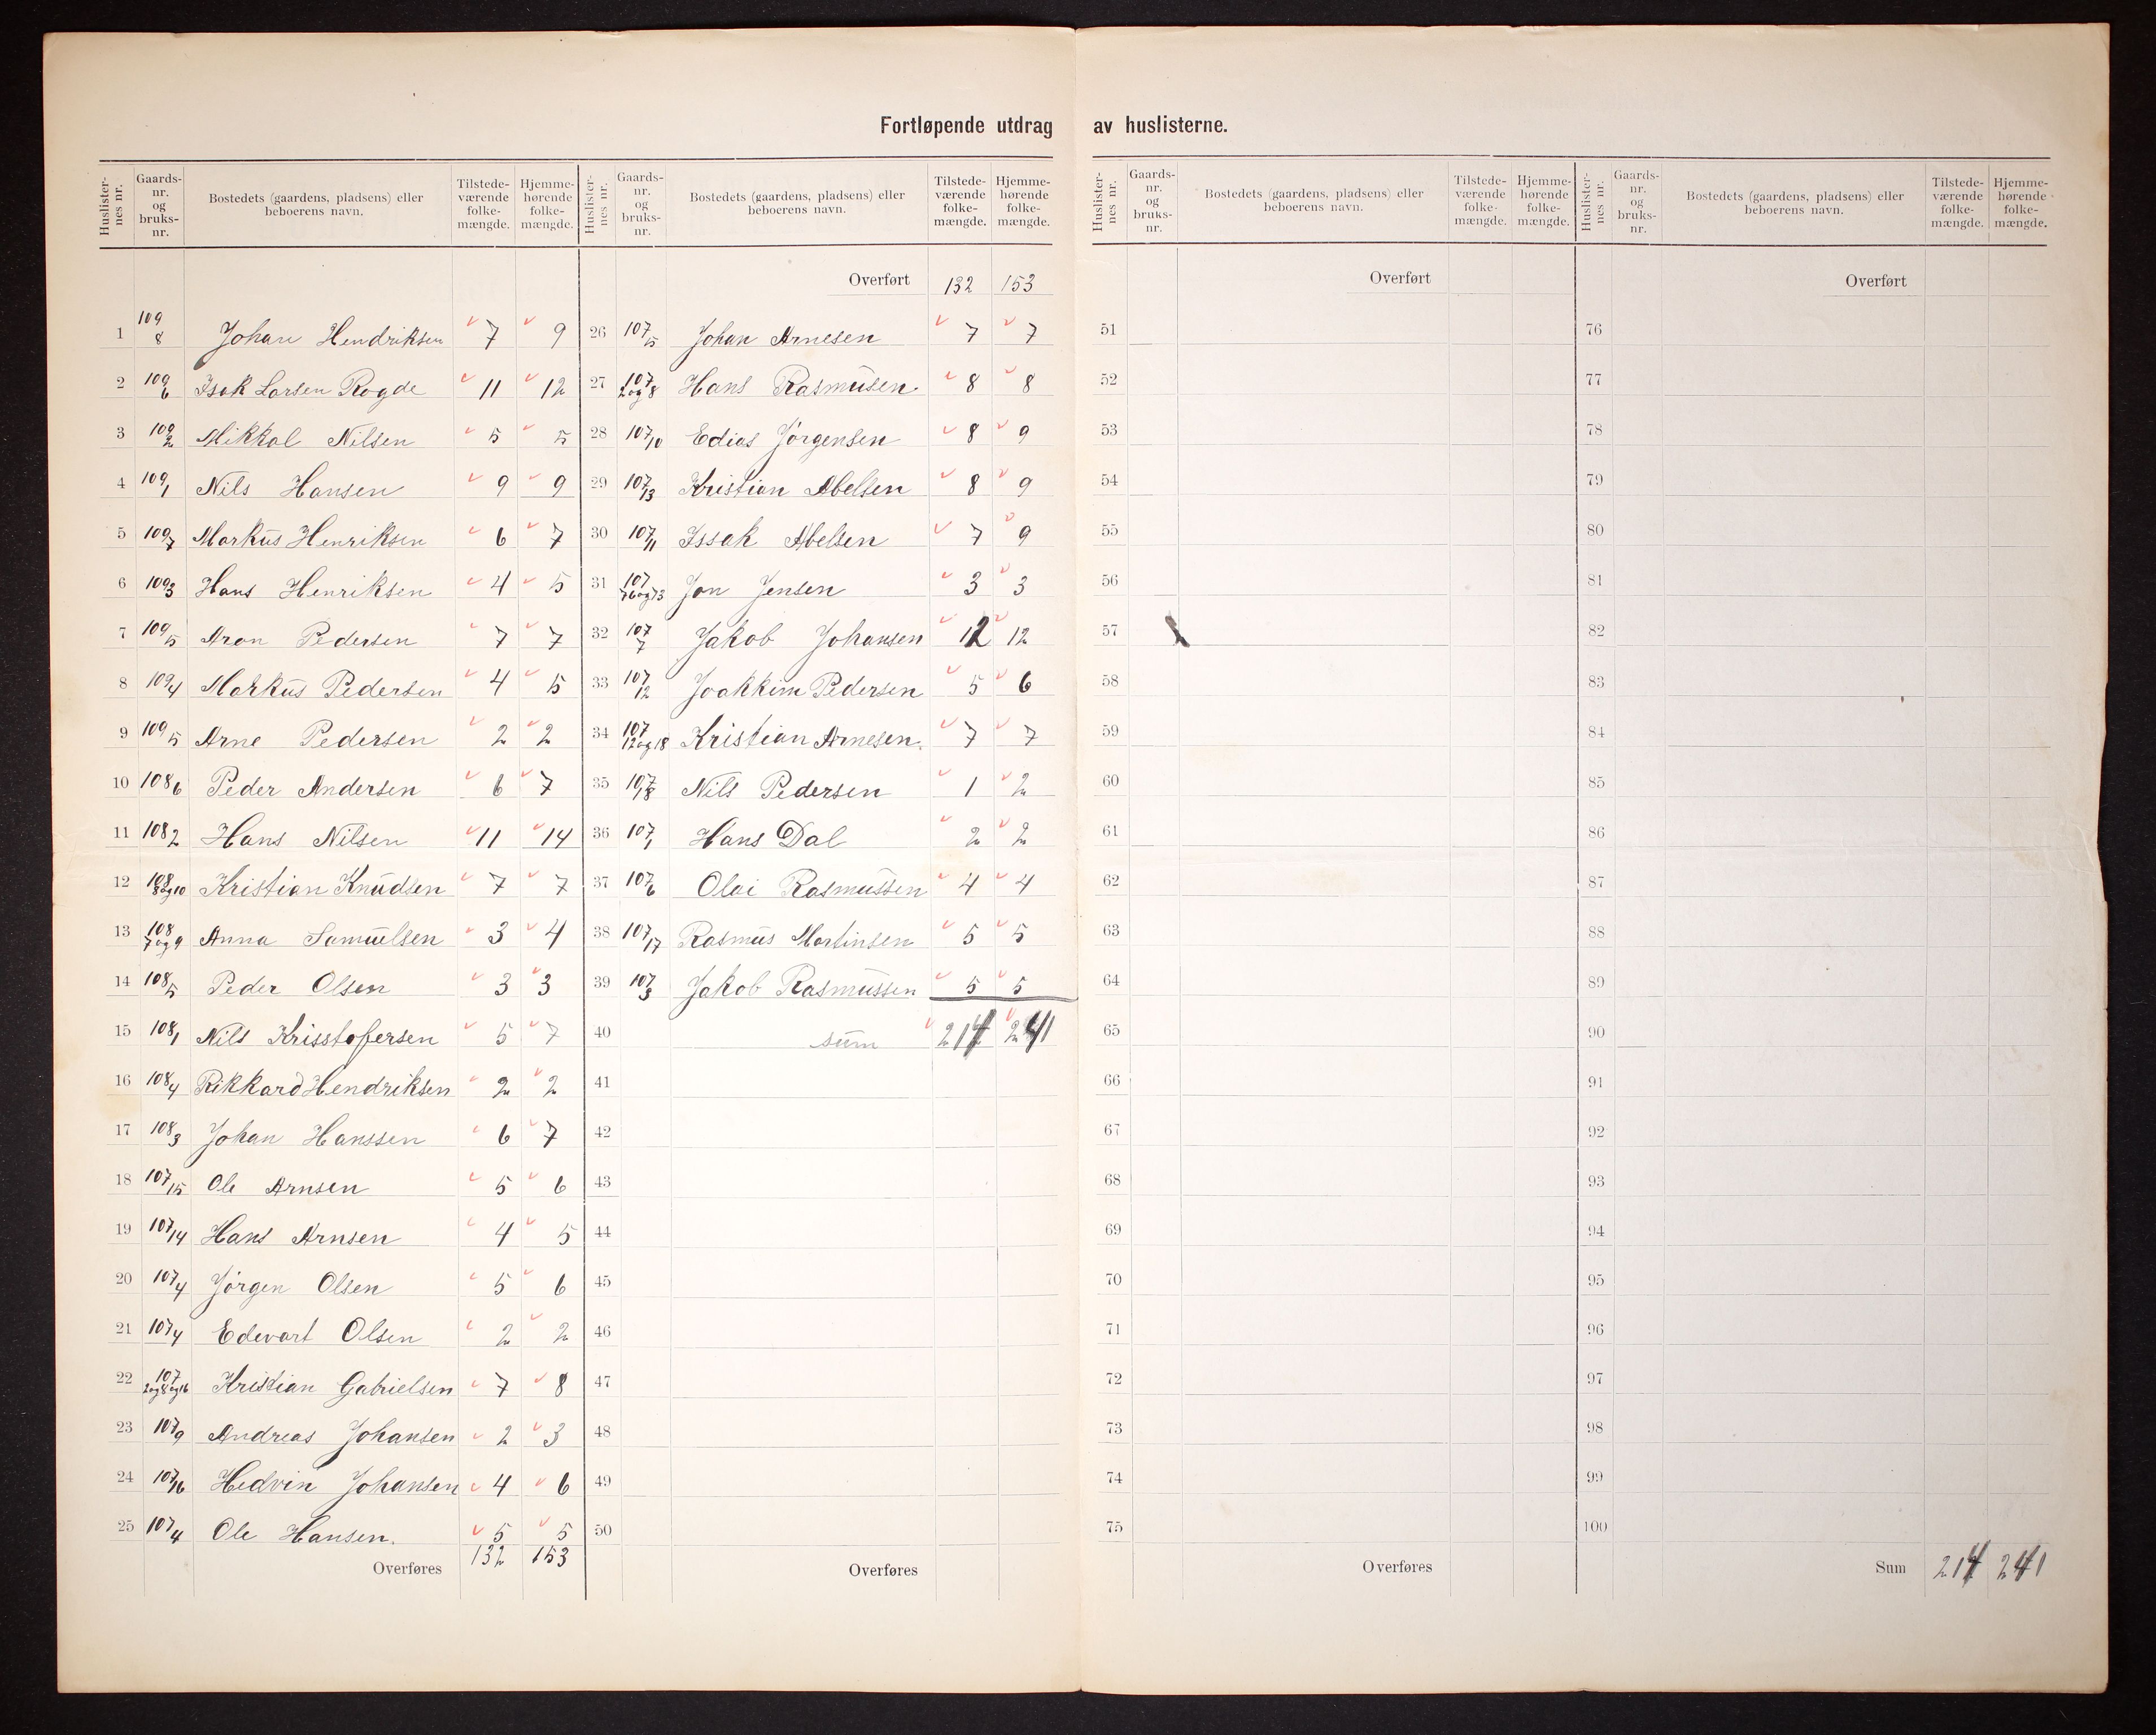 Fortløpende utdrag av huslisterne.
Huslister-nes nr. Gaards-nr. og bruks-nr. Bostedets (gaardens, pladsens) eller beboerens navn. Tilstede-værende folke-mængde. Hjemme-hørende folke-mængde.
1 109/8 Johan Hendriksen 7 9
2 109/6 Isak Larsen Rogde 11 12
3 109/2 Mikkal Nilsen 5 5
4 109/1 Nils Hansen 9 9
5 109/7 Markus Henriksen 6 7
6 109/3 Hans Henriksen 4 5
7 109/5 Aron Pedersen 7 7
8 109/4 Markus Pedersen 4 5
9 109/5 Arne Pedersen 2 2
10 108/6 Peder Andersen 6 7
11 108/2 Hans Nilsen 11 14
12 108/8 og 10 Kristian Knudsen 7 7
13 108/7 og 9 Anna Samuelsen 3 4
14 108/5 Peder Olsen 3 3
15 108/1 Nils Krisstofersen 5 7
16 108/4 Rikkard Hendriksen 2 2
17 108/3 Johan Hanssen 6 7
18 107/15 Ole Arnsen 5 6
19 107/14 Hans Arnsen 4 5
20 107/4 Jörgen Olsen 5 6
21 107/4 Edevart Olsen 2 2
22 107/2 og 8 og 16 Kristian Gabrielsen 7 8
23 107/9 Andreas Johansen 2 3
24 107/16 Hedvin Johansen 4 6
25 107/4 Ole Hansen. 5 5
Overføres 132 153
Huslister-nes nr. Gaards-nr. og bruks-nr. Bostedets (gaardens, pladsens) eller beboerens navn. Tilstede-værende folke-mængde. Hjemme-hørende folke-mængde.
Overført 132 153
26 107/5 Johan Arnesen 7 7
27 107/2 og 8 Hans Rasmusen 8 8
28 107/10 Edias Jörgensen 8 9
29 107/13 Kristian Abelsen 8 9
30 107/11 Issak Abelsen 7 9
31 107/16 og 13 Jon Jensen 3 3
32 107/7 Jakob Johansen 12 12
33 107/12 Joakkim Pedersen 5 6
34 107/12 og 18 Kristian Arnesen. 7 7
35 107/18 Nils Pedersen 1 2
36 107/1 Hans Dal 2 2
37 107/6 Olai Rasmussen 4 4
38 107/17 Rasmus Martinsen 5 5
39 107/3 Jakob Rasmussen 5 5
40 sum 214 241
41
42
43
44
45
46
47
48
49
50
Overføres
Huslister-nes nr. Gaards-nr. og bruks-nr. Bostedets (gaardens, pladsens) eller beboerens navn. Tilstede-værende folke-mængde. Hjemme-hørende folke-mængde.
Overført
51
52
53
54
55
56
57
58
59
60
61
62
63
64
65
66
67
68
69
70
71
72
73
74
75
Overføres
Huslister-nes nr. Gaards-nr. og bruks-nr. Bostedets (gaardens, pladsens) eller beboerens navn. Tilstede-værende folke-mængde. Hjemme-hørende folke-mængde.
Overført
76
77
78
79
80
81
82
83
84
85
86
87
88
89
90
91
92
93
94
95
96
97
98
99
100
Sum 214 241